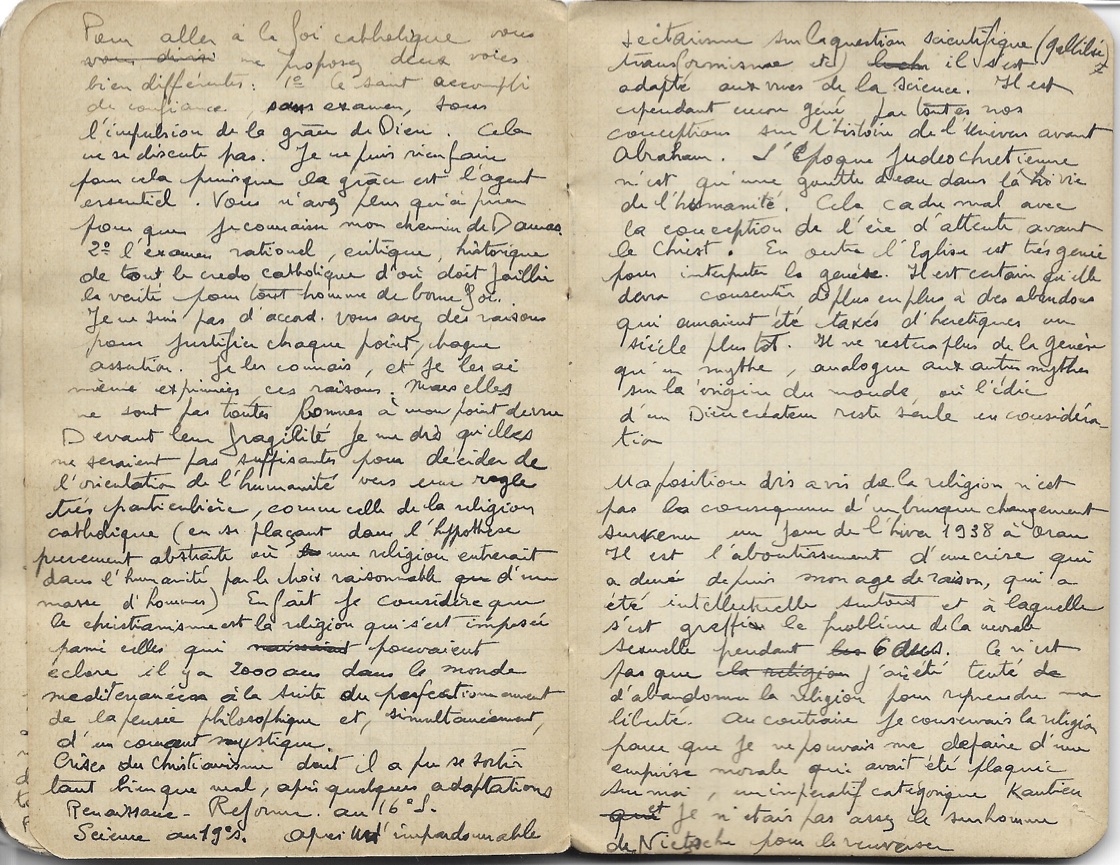 Pour aller à la foi catholique vous
vous divisi me proposez deux voies
bien différentes : 1º le saut accompli
de confiance, sans examen, sous
l'impulsion de la grâce de Dieu. Cela
ne se discute pas. Je ne puis rien faire
pour cela puisque la grâce est l'agent
essentiel. Vous n'avez plus qu'à prier
pour que je connaisse mon chemin de Damas.
2º l'examen rationel, critique, historique
de tout le credo catholique d'où doit jaillir
la verité pour tout homme de bonne foi.
Je ne suis pas d'accord. Vous avez des raisons
pour justifier chaque point, chaque
assertion. Je les connais, et je les ai
même exprimées ces raisons. Mais elles
ne sont pas toutes bonnes à mon point de vue
Devant leur fragilité je me dis qu'elles
ne seraient pas suffisantes pour décider de
l'orientation de l'humanité vers une règle
très particulière, comme celle de la religion
catholique (en se plaçant dans l'hypothèse
purement abstraite où la une religion entrerait
dans l'humanité par le choix raisonnable que d'une
masse d'hommes) En fait je considère que
le christianisme est la religion qui s'est imposée
parmi celles qui naissaient pouvaient
eclore il y a 2000 ans dans le monde
mediterranéen à la suite du perfectionnement
de la pensée philosophique et, simultanément,
d'un courant mystique.
Crises du christianisme dont il a pu se sortir
tant bien que mal, après quelques adaptations
Renaissance - Reforme. au 16º S.
Science au 19º s. Après un impardonnable
sectarisme sur la question scientifique (Gallilée
transformisme etc) il s'est
adapté aux vues de la science. Il est
cependant encore gêné par toutes nos
conceptions sur l'histoire de l'Univers avant
Abraham. L'Epoque Judeochretienne
n'est qu'une goutte d'eau dans la vie
de l'humanité. Cela cadre mal avec
la conception de l'ère d'attente avant
le Christ. En outre l'Eglise est très gênée
pour interpreter la genèse. Il est certain qu'elle
devra consentir de plus en plus à des abandons
qui auraient été taxés d'heretiques un
siècle plus tôt. Il ne restera plus de la genèse
qu'un mythe, analogue aux autres mythes
sur l'origine du monde, où l'idée
d'un Dieu createur reste seule en considéra
tion
Ma position vis a vis de la religion n'est
pas la conséquence d'un brusque changement
survenu un jour de l'hiver 1938 à Oran
Il est l'aboutissement d'une crise qui
a duré depuis mon age de raison, qui a
été intellectuelle surtout et à laquelle
s'est greffée le problème de la morale
sexuelle pendant les 6 ans. Ce n'est
pas que la religion j'ai été tenté de
d'abandonner la religion pour reprendre ma
liberté. Au contraire je conservais la religion
parce que je ne pouvais me defaire d'une
emprise morale qui avait été plaquée
sur moi, un impératif catégorique Kantien
que et je n'étais pas assez le surhomme
de Nietzsche pour le renverser